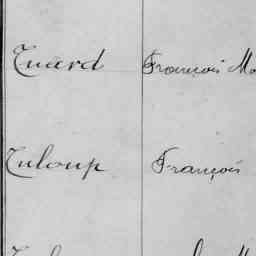 Tuard François Ma
Tuloup François